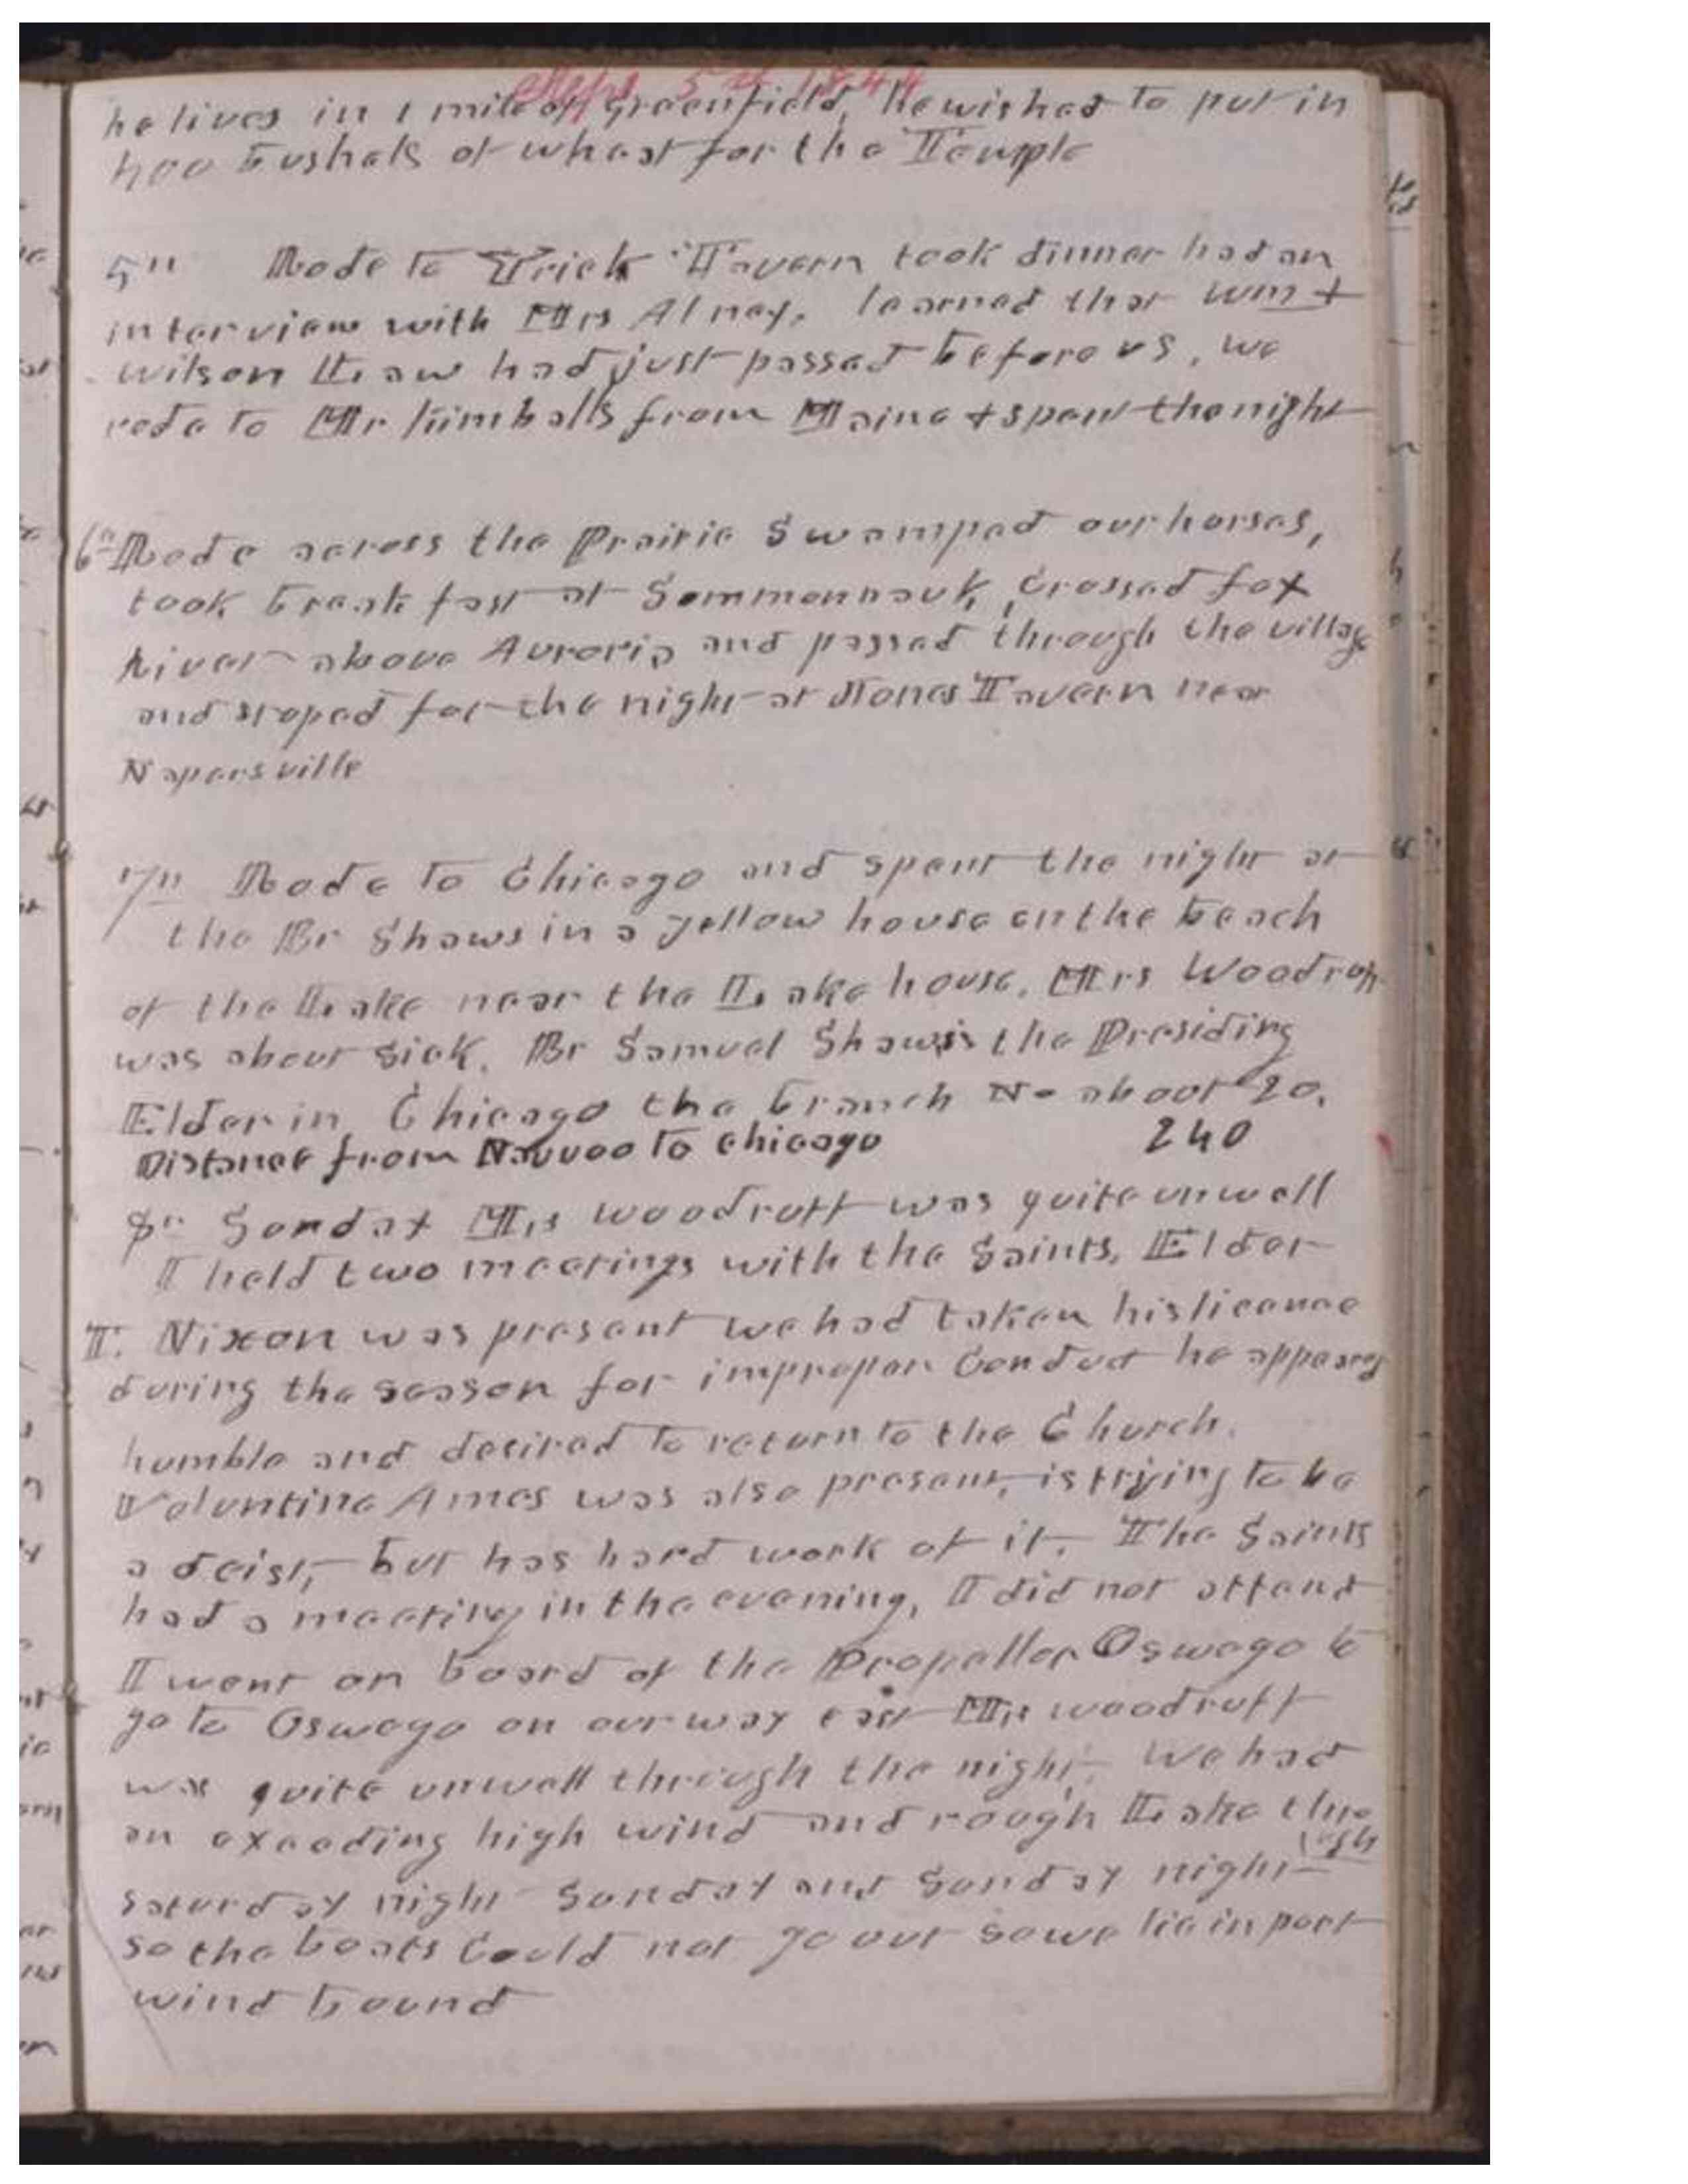 Sept 5th 1844
he lives in 1 mile of Greenfield, he wishes to put in
400 bushels of wheat for the Temple
5th Rode to Brick Tavern took dinner had an
interview with Mrs Almay. learned that Wm &
Wilson Law had just passed before us, we
rode to Mr Kimballs from Maine & spent the night
6th Rode across the Prairie Swamped our horses,
took breakfast at Sommonnauk, Crossed fox
River above Auroria and passed through the village
and stoped for the night at Stones Tavern near
Naparsville
7th Rode to Chicago and spent the night at
the Br Shaws in a yellow house on the beach
of the Lake near the Lake house. Mrs Woodruff
was about sick. Br Samuel Shaw is the Presiding
Elder in Chicago the branch No about 20.
Distance from Nauvoo to Chicago 240
8th Sunday Mrs Woodruff was quite unwell
I held two meetings with the Saints. Elder
T. Nixon was present we had taken his licence
during the season for improper Conduct he appears
humble and desired to return to the Church.
Voluntine Ames was also present, is trying to be
a deist, but has hard work of it. The Saints
had a meeting in the evening, I did not attend
I went on board of the Propellor Oswego to
go to Oswego on our way east Mrs Woodruff
was quite unwell through the night. We had
an exceeding high wind and rough Lake through
saturday night Sunday and Sunday night
so the boats Could not go out so we lie in port
wind bound